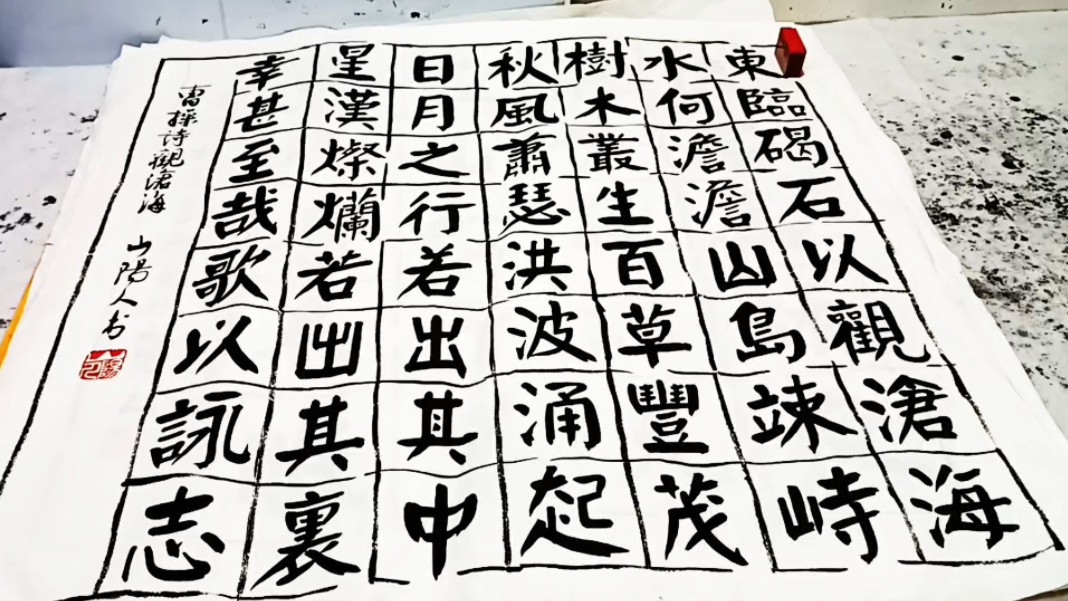 東臨碣石以觀滄海
水何澹澹山島竦峙
樹木叢生百草豐茂
秋風蕭瑟洪波涌起
日月之行若出其中
星漢燦爛若出其裏
幸甚至哉歌以詠志
曹操詩觀滄海 山陽人书